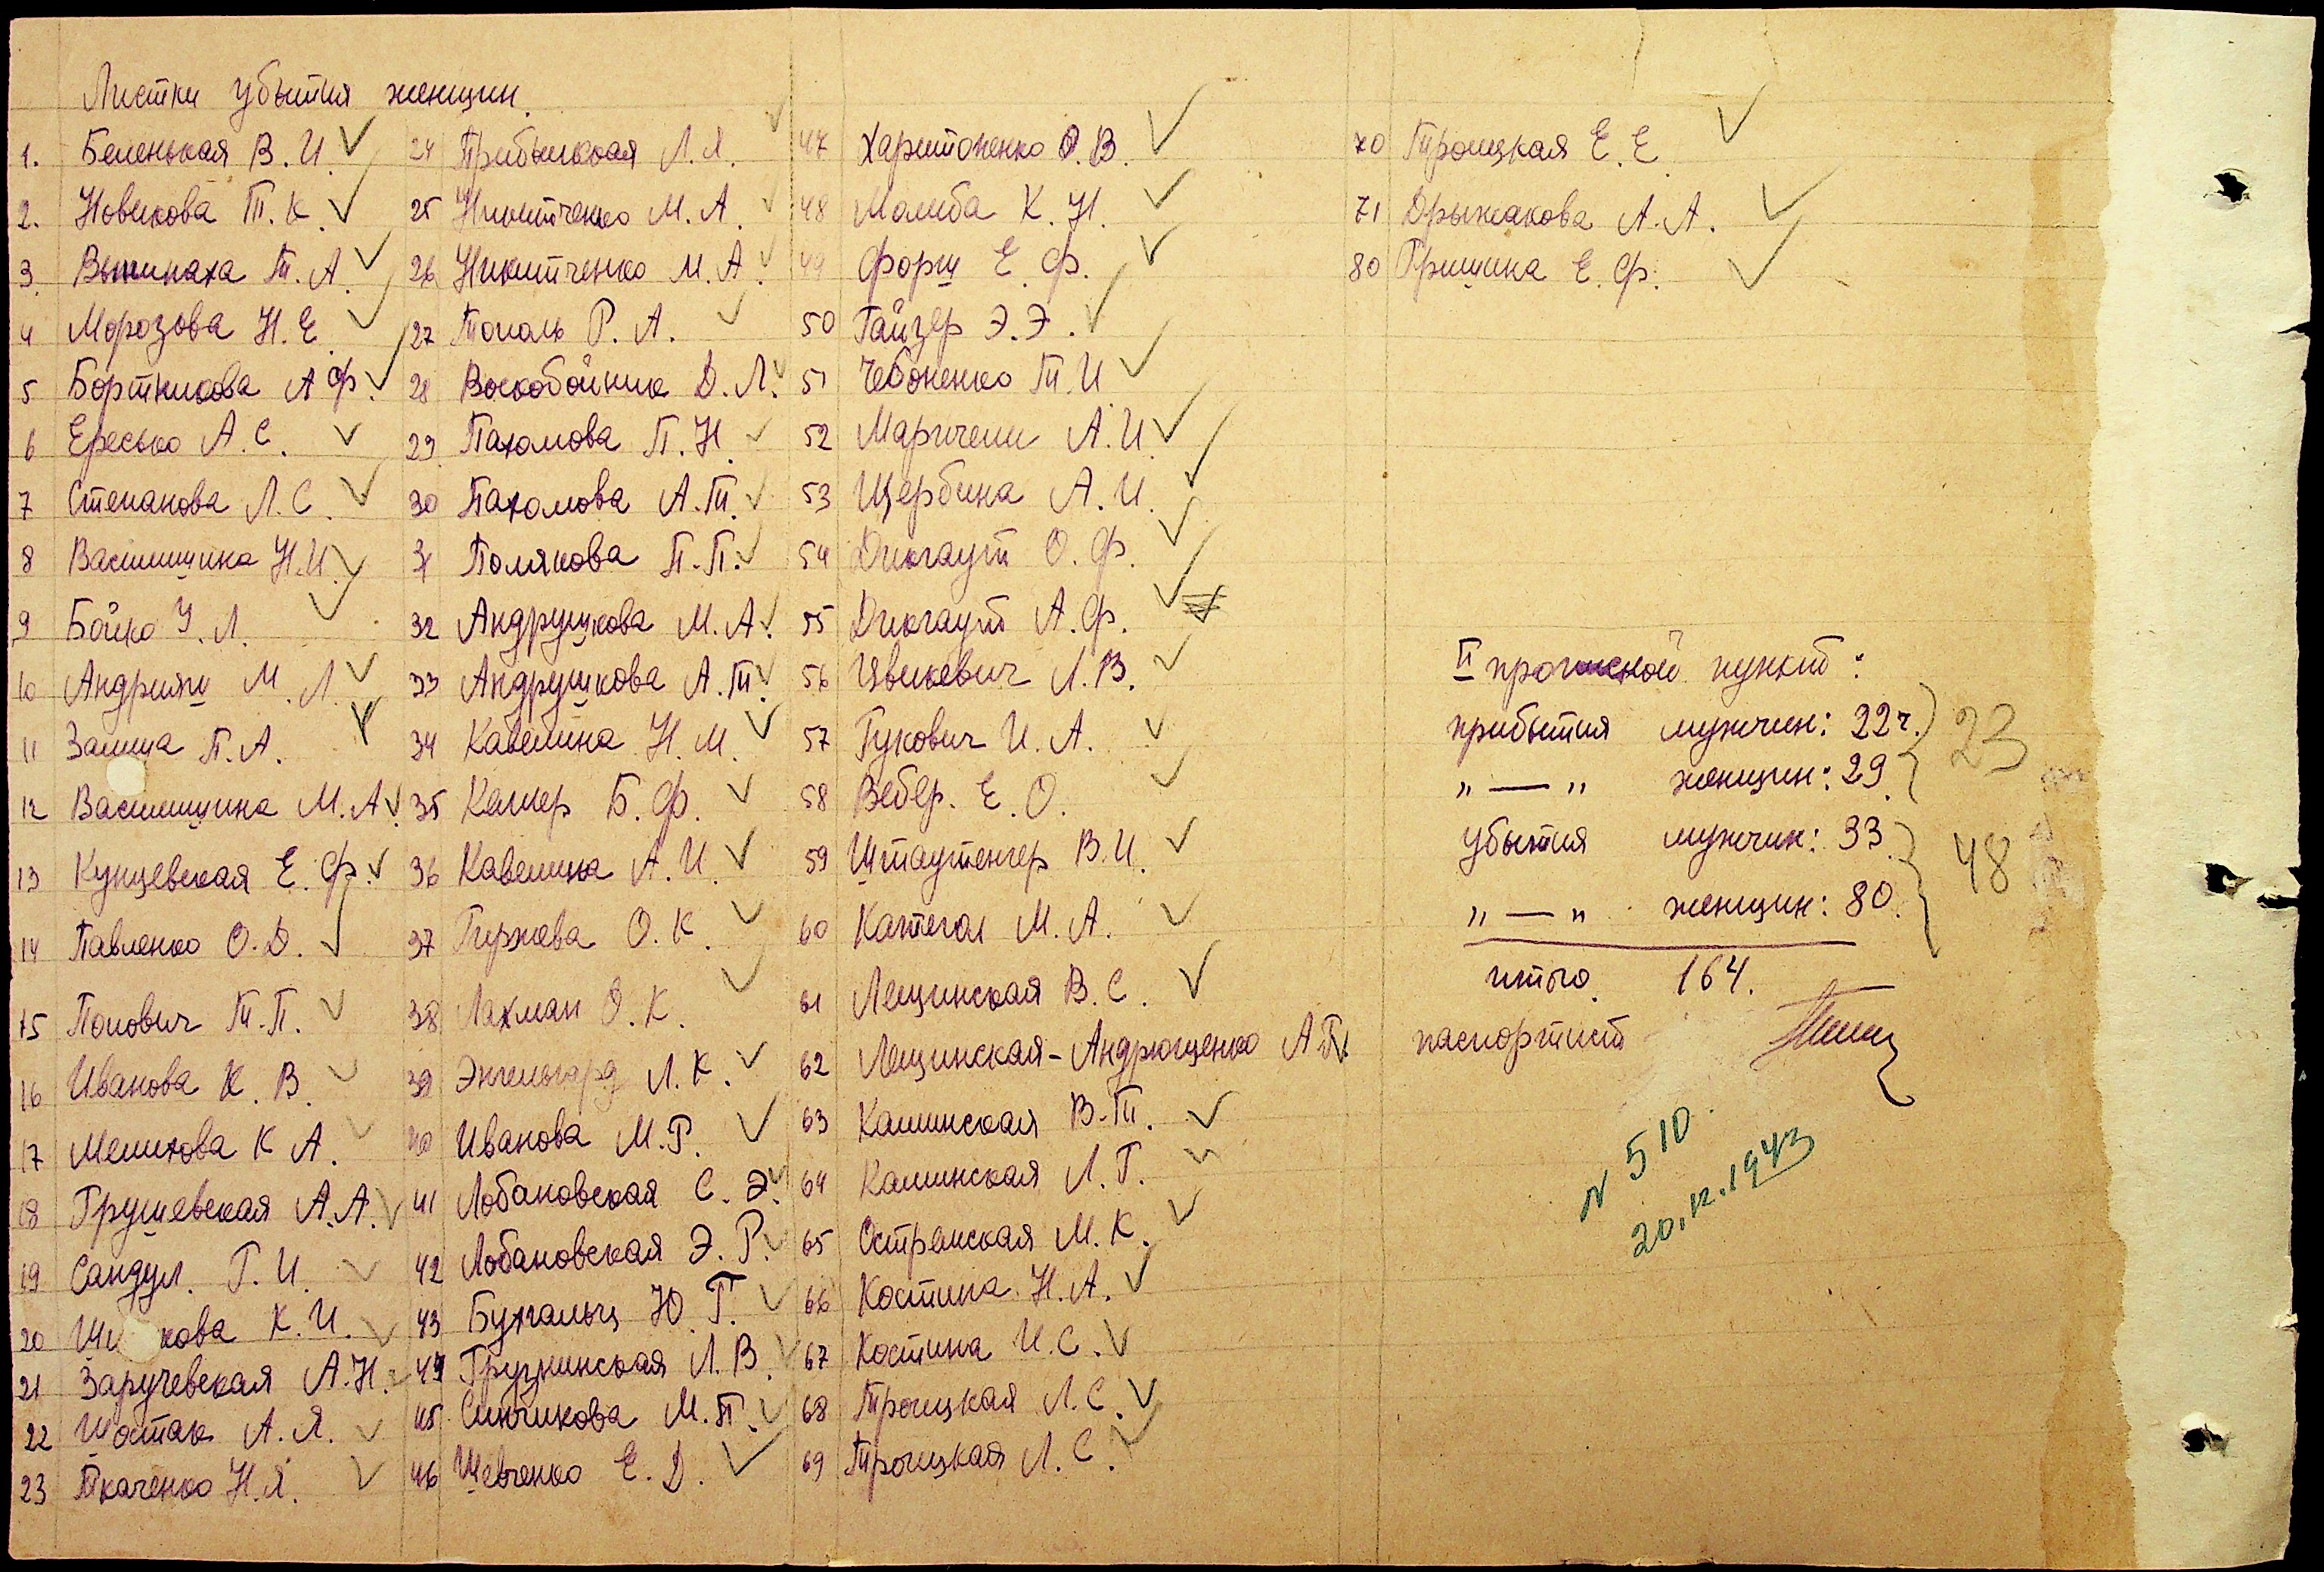 Листки убытия женщин.
1. Беленькая В. И.
2. Новикова Т. К.
3. Т. А.
4 Морозова Н. Е.
5 Бортникова А Ф.
6 Ересько А. С.
7 Степанова Л. С.
8 Василишина Н. И.
9 Бойко У. Л.
10 Андрияш М. Л.
11 Заица П. А.
12 Василишина М. А.
13 Кунцевская Е. Ф.
14 Павленко О. Д.
15 Попович Т. П.
16 Иванова К. В.
17 Мелихова К А.
18 Грушевская А. А.
19 Сандул. Г. И.
20 К. И.
21 Заручевская А. Н.
22 Шостак А. Я.
23 Ткаченко Н. Я.
24 Прибыльская Л. Я.
25 Никитченко М. А.
26 Никитченко М. А.
27 Тополь Р. А.
28 Воскобойник Д. Л.
29 Пахомова П. Н.
30 Пахомова А. Т.
31 Полякова П. П.
32 Андрушкова М. А.
33 Андрушкова А. Т.
34 Кавелина Н. М.
35 Келлер Б. Ф.
36 Кавелина А. И.
37 Гиржева О. К.
38 Лахман О. К.
39 Энгельгард Л. К.
40 Иванова М. Г.
41 Лобановская С. Э.
42 Лобановская Э. Р.
43 Бухгольц Ю. Г.
44 Грузинская Л. В.
45 Синчикова М. П.
46 Шевченко Е. Д.
47 Харитоненко О. В.
48 Молиба К. Н.
49 Форш Е. Ф.
50 Гайзер Э. Э.
51 Чебоненко Т. И
52 А. И.
53 Щербина А. И.
54 Дикгаут О. Ф.
55 Дикгаут А. Ф.
56 Цвикевич Л. В.
57 Гукович И. А.
58 Вебер. Е. О.
59 Штаутенгер В. И.
60 М. А.
61 Лещинская В. С.
62 Лещинская-Андрющенко А. П.
63 Калинская В. Т.
64 Калинская Л. Г.
65 Острянская М. К.
66 Костина Н. А.
67 Костина И. С.
68 Троицкая Л. С.
69 Троицкая Л. С.
70 Троицкая Е. Е.
71 Дрыжакова А. А.
80 Гришина Е. Ф.
II прописной пункт:
прибытия мужчин: 22 ч.
„ — „ женщин: 29.
23
убытия мужчин: 33.
„ — „ женщин: 80.
48
итого 164.
паспортист
N 510.
20.IX.1943